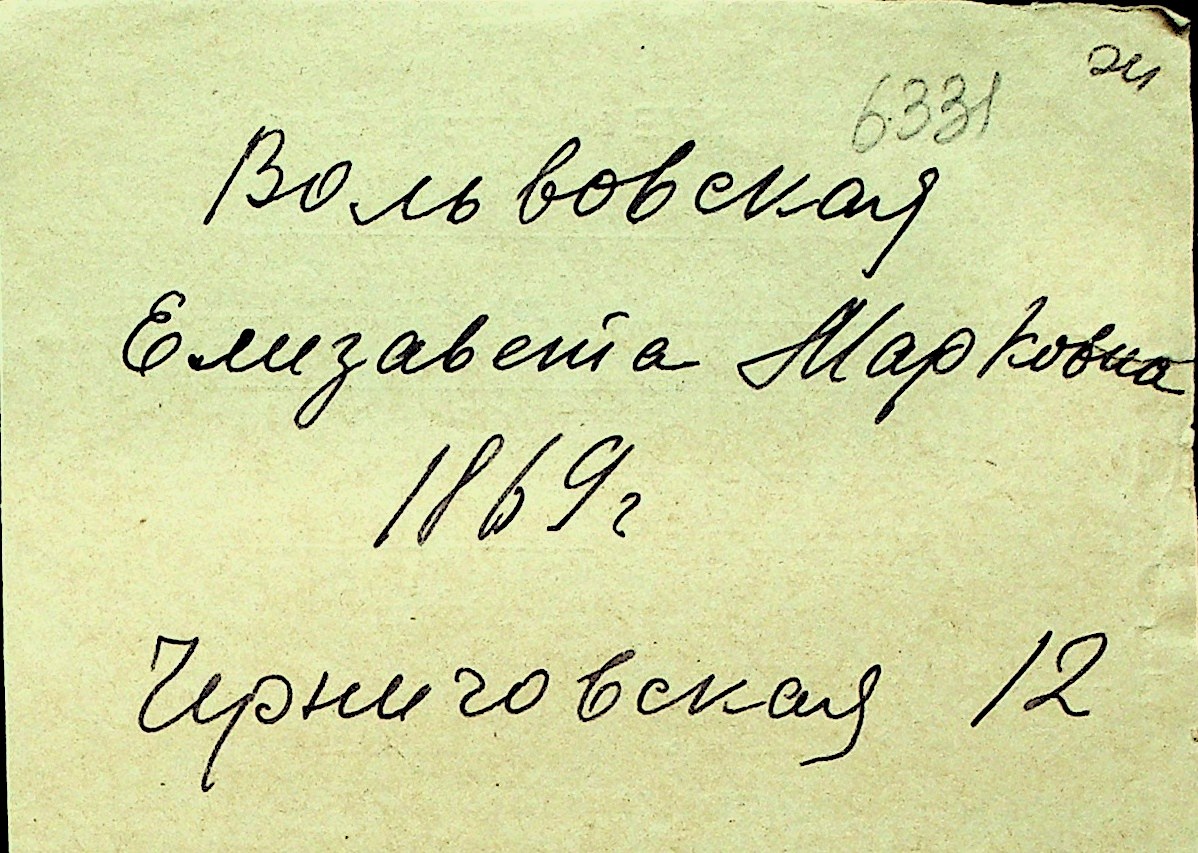 6331
Вольвовская
Елизавета Марковна
1869г
Черниговская 12